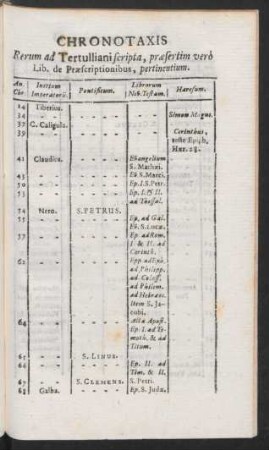 CHRONOTAXIS
Rerum ad Tertulliani scripta, præsertim verò
Lib. de Præscriptionibus, pertinentium.
An. Chr. Initium Imperatorū. Pontificum. Librorum Nov. Testam. Hæresum.
14 Tiberius.
34 Simon Magus.
37 C. Caligula.
39 Cerinthus, teste Epiph. Hær. 28.
41 Claudius. Evangelium S. Matthæi.
43 Ev. S. Marci.
Ep. I. S. Petr.
Ep. I. & II. ad Thessal.
54 Nero. S. PETRUS.
Ep. ad Gal.
Ev. S. Lucæ.
57 Ep. ad Rom. I. & II. ad Corinth.
62 Epp. ad Eph. ad Philipp. ad Coloss. ad Philem. ad Hebræos. Item S. Jacobi.
64 Acta Apost. Ep. I. ad Timoth. & ad Titum.
S. LINUS.
Ep. II. ad Tim. & II. S. Petri.
67 S. CLEMENS.
68 Galba. Ep. S. Judæ.